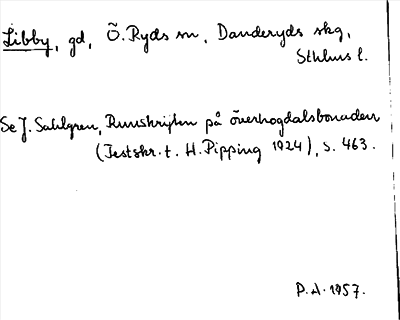 Libby, gd, Ö. Ryds sn, Danderyds skg,
Sthlms l.
Se J. Sahlgren, Runskriften på överhogdalsbonaden
(Festskr. t. H. Pipping 1924), s. 463.
P.A. 1957.